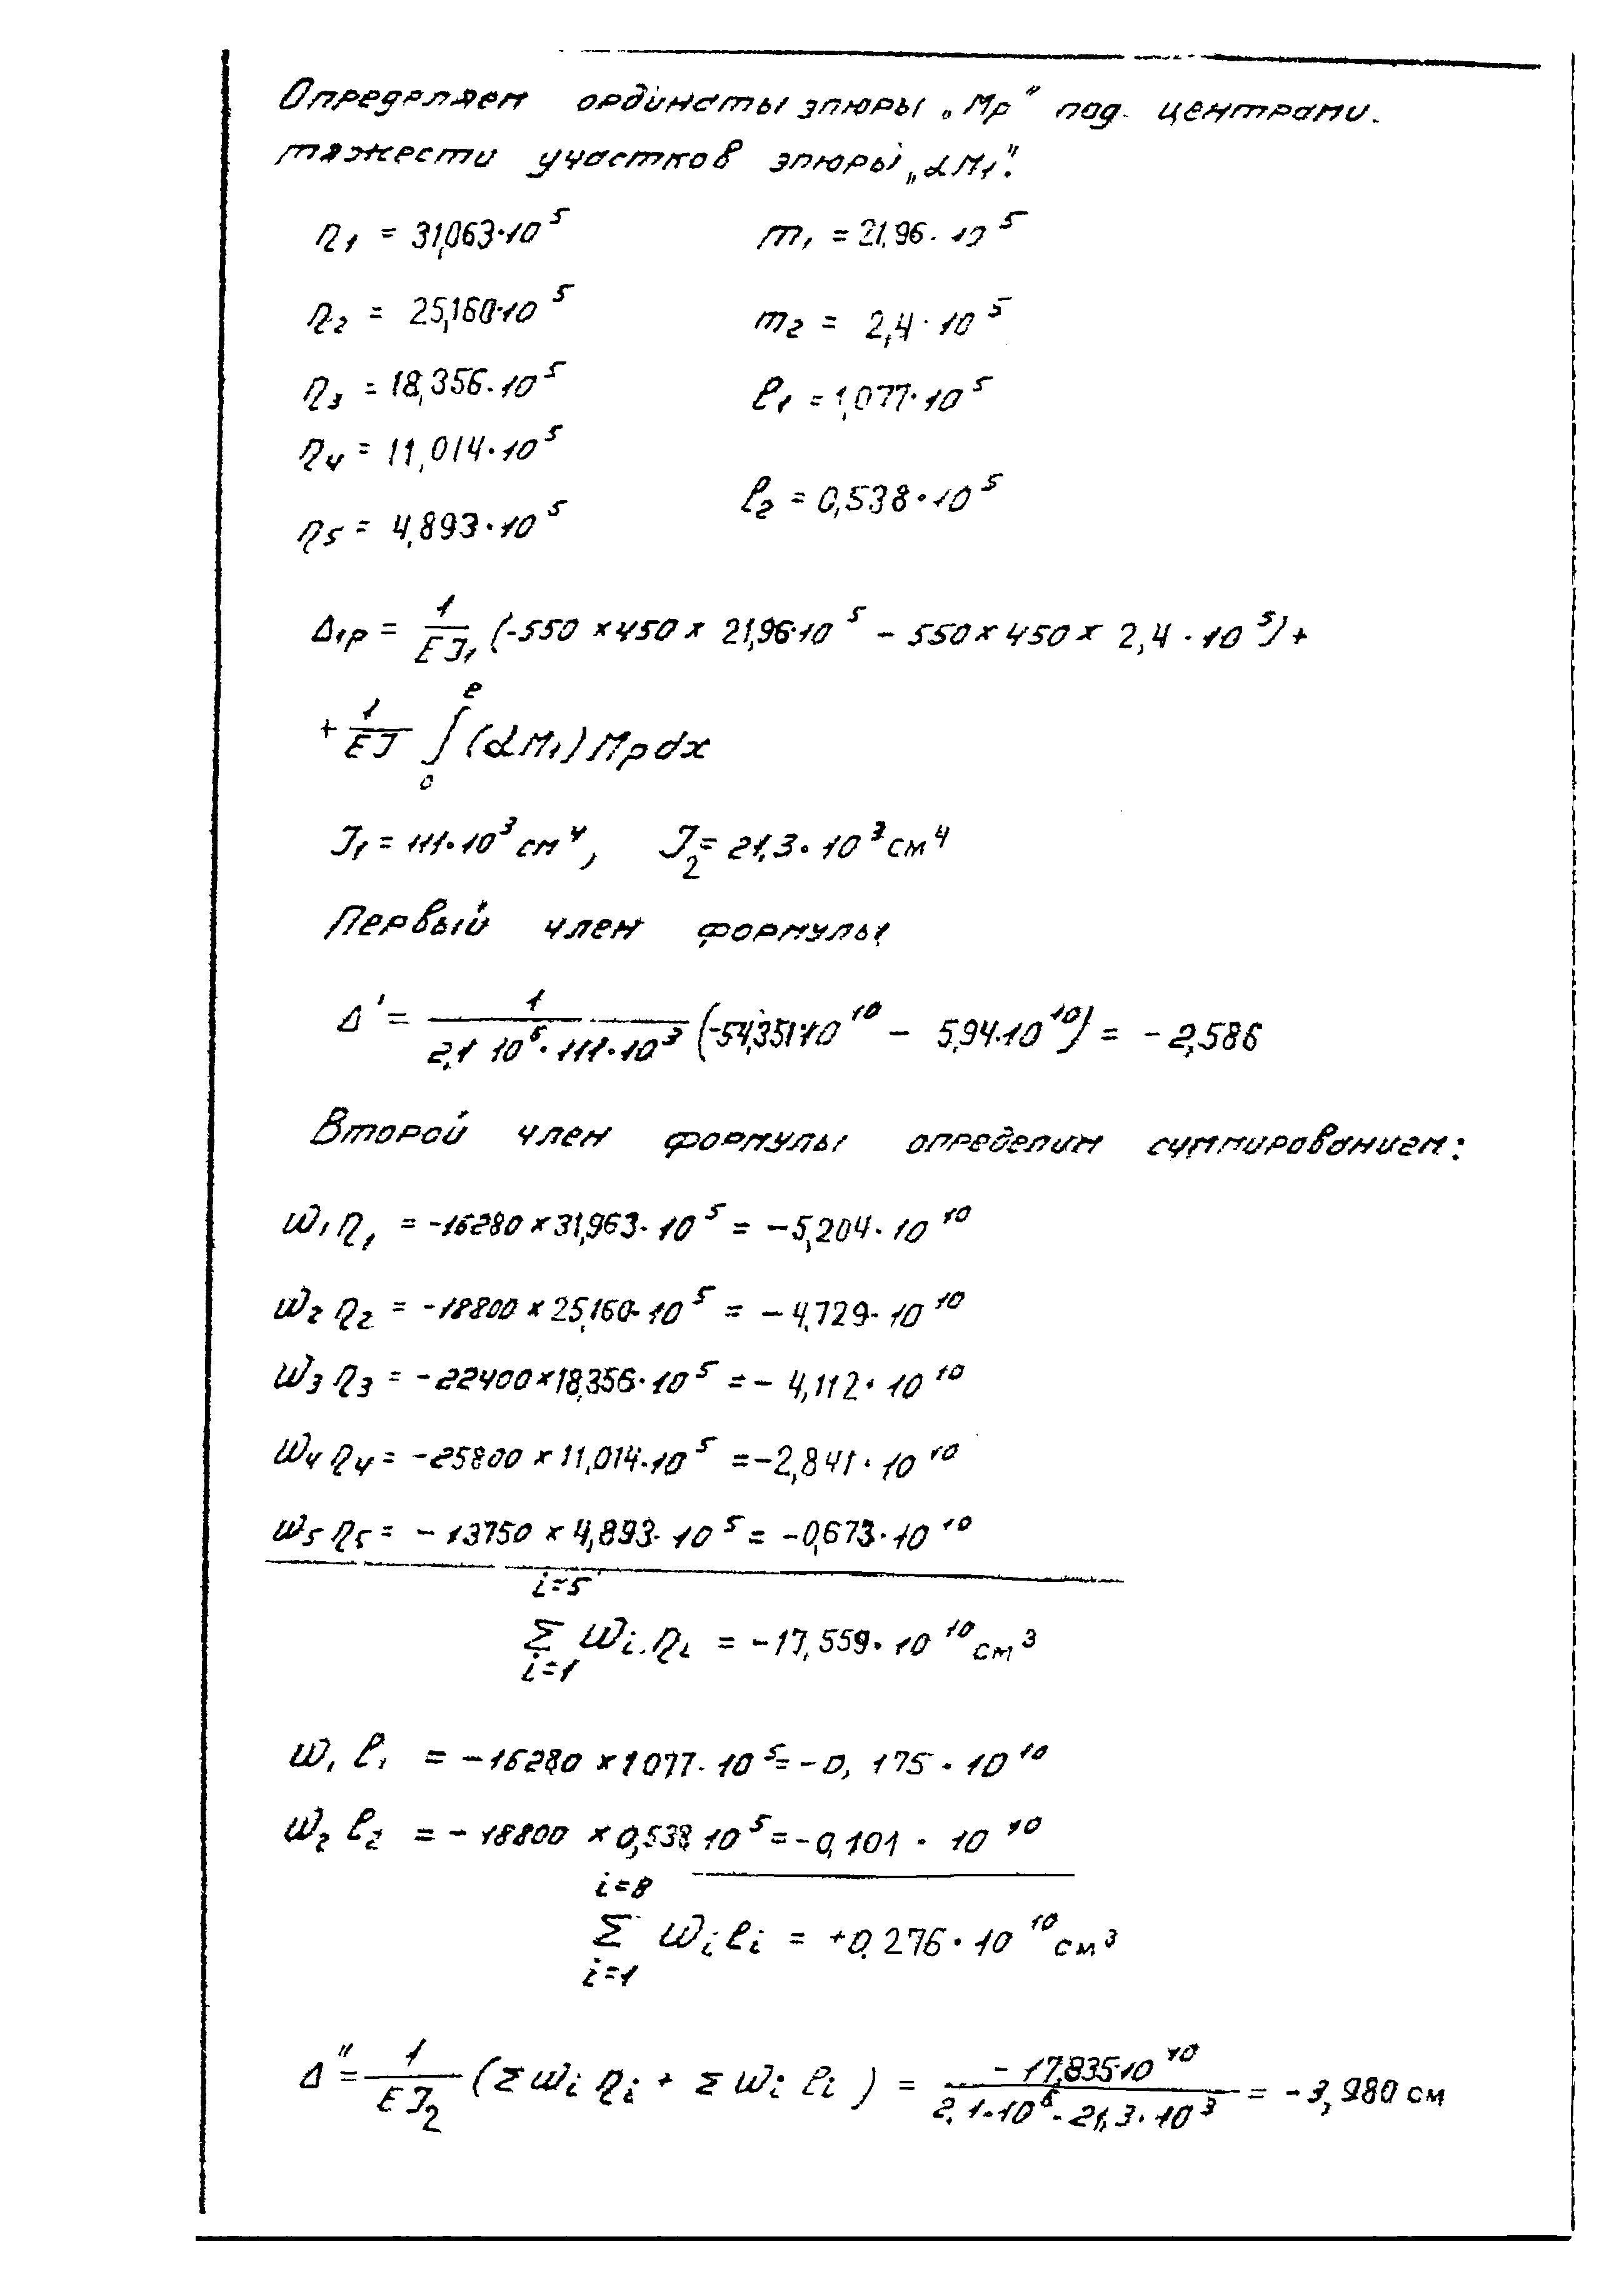 Определяем ординаты эпюры „Mp“ под центрами
тяжести участков эпюры „αM₁“.
η₁ = 31,063·10⁵ m₁ = 21,96·10⁵
η₂ = 25,160·10⁵ m₂ = 2,4·10⁵
η₃ = 18,356·10⁵ ℓ₁ = 1,077·10⁵
η₄ = 11,014·10⁵
ℓ₂ = 0,538·10⁵
η₅ = 4,893·10⁵
Δ₁p = 1/EJ₁ (-550×450×21,96·10⁵ - 550×450×2,4·10⁵) +
+ 1/EJ ∫₀^ℓ (αM₁) Mp dx
J₁ = 111·10³ см⁴, J₂ = 21,3·10³ см⁴
Первый член формулы
Δ' = 1/(2,1 10⁶·111·10³) (-54,351·10¹⁰ - 5,94·10¹⁰) = -2,586
Второй член формулы определим суммированием:
ω₁η₁ = -16280×31,963·10⁵ = -5,204·10¹⁰
ω₂η₂ = -18800×25,160·10⁵ = -4,729·10¹⁰
ω₃η₃ = -22400×18,356·10⁵ = -4,112·10¹⁰
ω₄η₄ = -25800×11,014·10⁵ = -2,841·10¹⁰
ω₅η₅ = -13750×4,893·10⁵ = -0,673·10¹⁰
i=5
Σ ωᵢ·ηᵢ = -17,559·10¹⁰ см³
i=1
ω₁ℓ₁ = -16280×1077·10⁵ = -0,175·10¹⁰
ω₂ℓ₂ = -18800×0,538 10⁵ = -0,101·10¹⁰
i=8
Σ ωᵢℓᵢ = +0,276·10¹⁰ см³
i=1
Δ" = 1/EJ₂ (Σωᵢηᵢ + Σωᵢℓᵢ) = -17,835·10¹⁰/(2,1·10⁶·21,3·10³) = -3,980 см